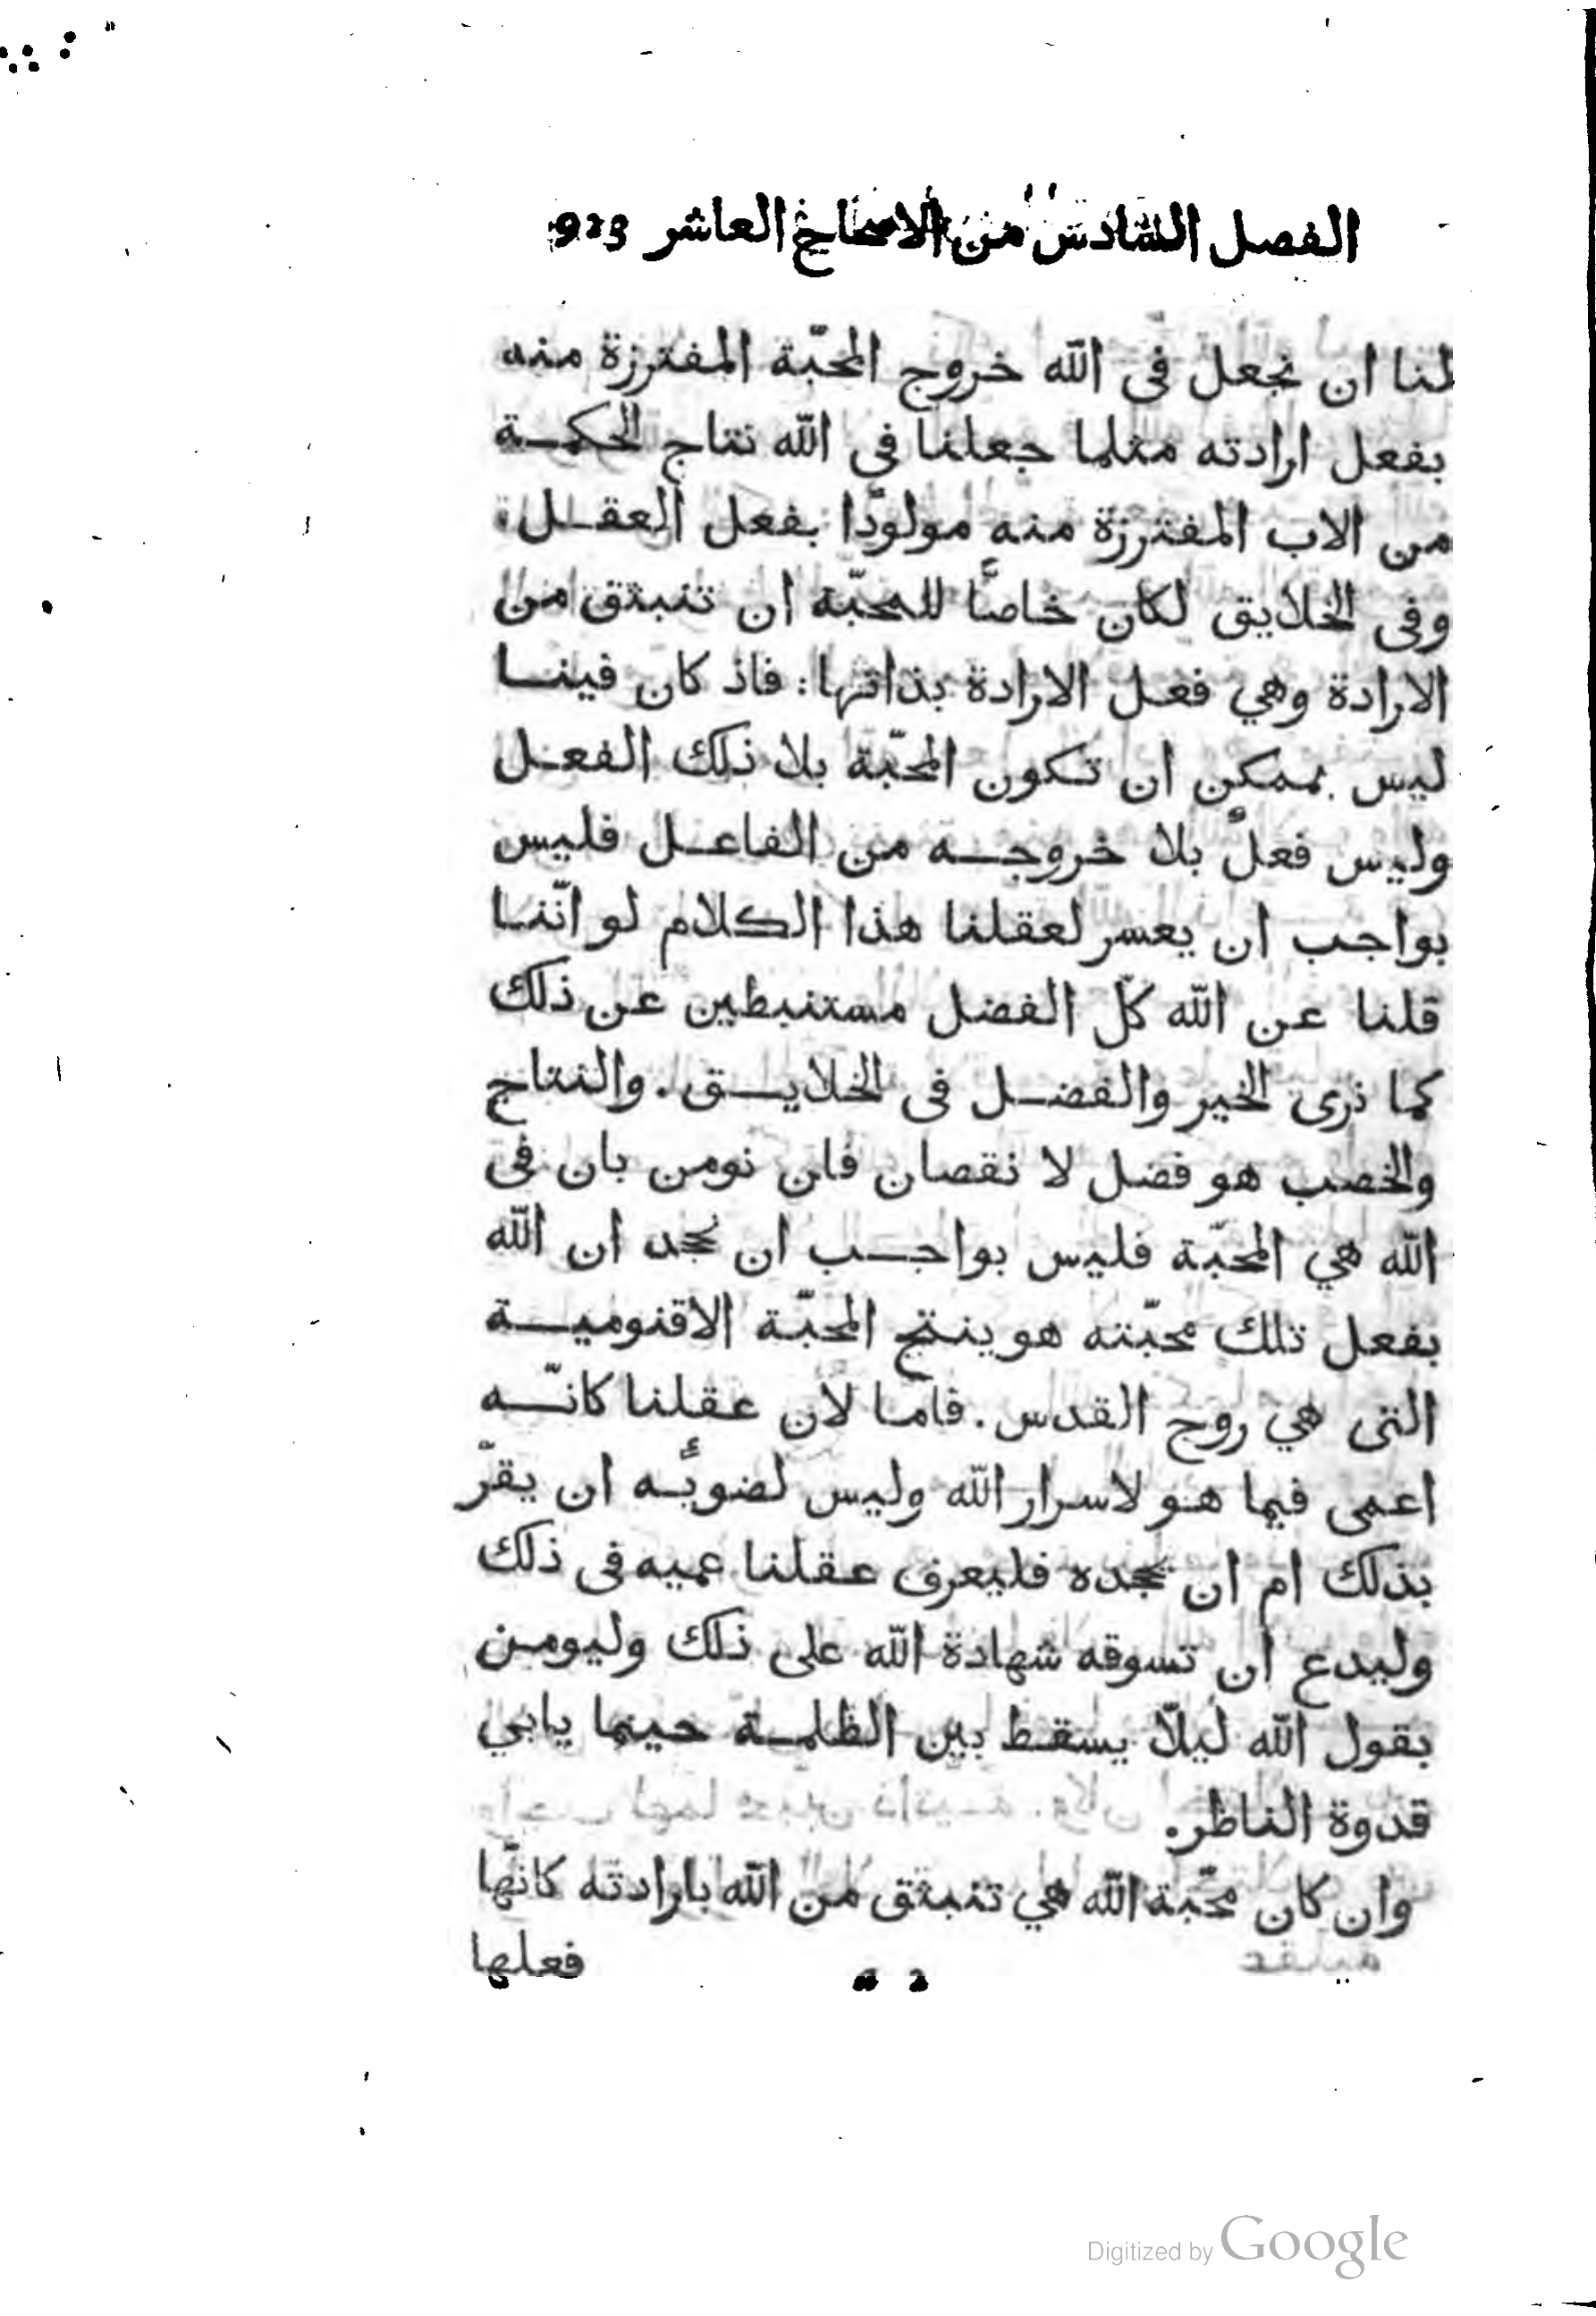 الفصل السادس من الاصحاح العاشر 923
لنا ان نجعل فى الله خروج المحبّة المفترزة منه
بفعل ارادته مثلما جعلنا فى الله نتاج الحكمة
من الاب المفترزة منه مولودًا بفعل العقل
وفى الخلايق لكان خاصًّا للمحبّة ان تنبثق من
الارادة وهي فعل الارادة بذاتها: فاذ كان فينا
ليس بممكن ان تكون المحبّة بلا ذلك الفعل
وليس فعلٌ بلا خروجه من الفاعل فليس
بواجب ان يعسر لعقلنا هذا الكلام لو انّنا
قلنا عن الله كلّ الفضل مستنبطين عن ذلك
كما نرى الخير والفضل فى الخلايق. والنتاج
والخصب هو فضل لا نقصان فان نومن بان فى
الله هي المحبّة فليس بواجب ان نجحد ان الله
بفعل تلك محبّته هو ينتج المحبّة الاقنومية
التى هي روح القدس. فامّا لان عقلنا كانّه
اعمى فيما هو لاسرار الله وليس لضوئه ان يقرّ
بذلك ام ان يجحده فليعرف عقلنا عميه فى ذلك
وليدع ان تسوقه شهادة الله على ذلك وليومن
بقول الله ليلّا يسقط بين الظلمة حينما يابي
قدوة الناظر.
وان كان محبّة الله هي تنبثق من الله بارادته كانّها
فعلها
Digitized by Google